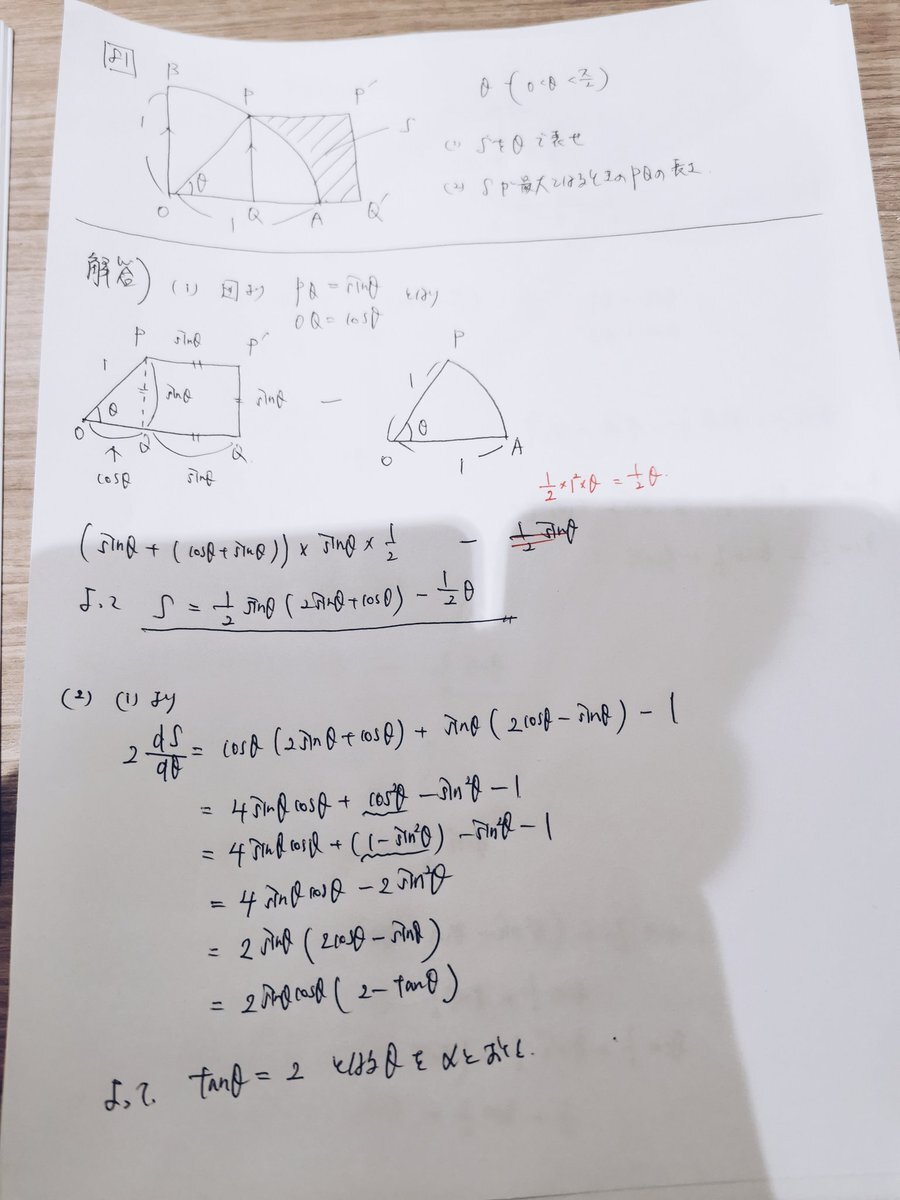 81
B
P
P'
1
S
θ
O
Q
A
Q'
1
θ (0<θ<π/2)
(1) Sをθで表せ
(2) Sが最大となるときのPQの長さ
解答) (1) 図より PQ = sinθ となり
OQ = cosθ
P sinθ P'
1 sinθ sinθ
θ
O Q Q
cosθ sinθ
−
P
1
θ
O 1 A
1/2 × 1² × θ = 1/2 θ.
(sinθ + (cosθ + sinθ)) × sinθ × 1/2 − 1/2 sinθ
よって S = 1/2 sinθ (2sinθ + cosθ) − 1/2 θ
(2) (1) より
2 dS/dθ = cosθ (2sinθ + cosθ) + sinθ (2cosθ − sinθ) − 1
= 4sinθcosθ + cos²θ − sin²θ − 1
= 4sinθcosθ + (1 − sin²θ) − sin²θ − 1
= 4sinθcosθ − 2sin²θ
= 2sinθ (2cosθ − sinθ)
= 2sinθcosθ (2 − tanθ)
よって. tanθ = 2 となるθをαとおくと.